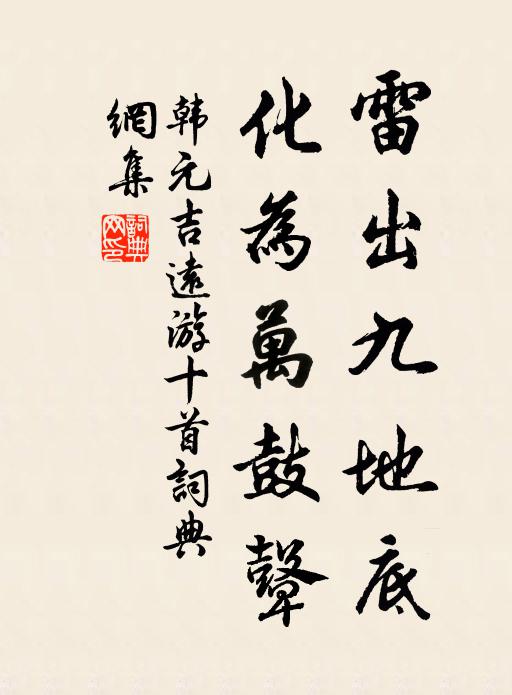 雷出九地底
化為萬鼓鼙
韩元吉遠游十首詞典
網集
詞典
网印